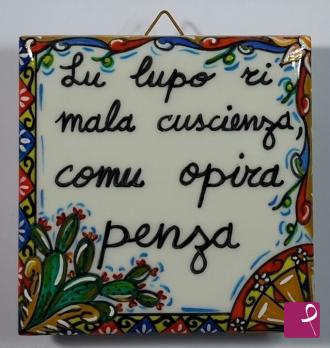 Lu lupo ri
mala cuscienza,
comu opira
penza